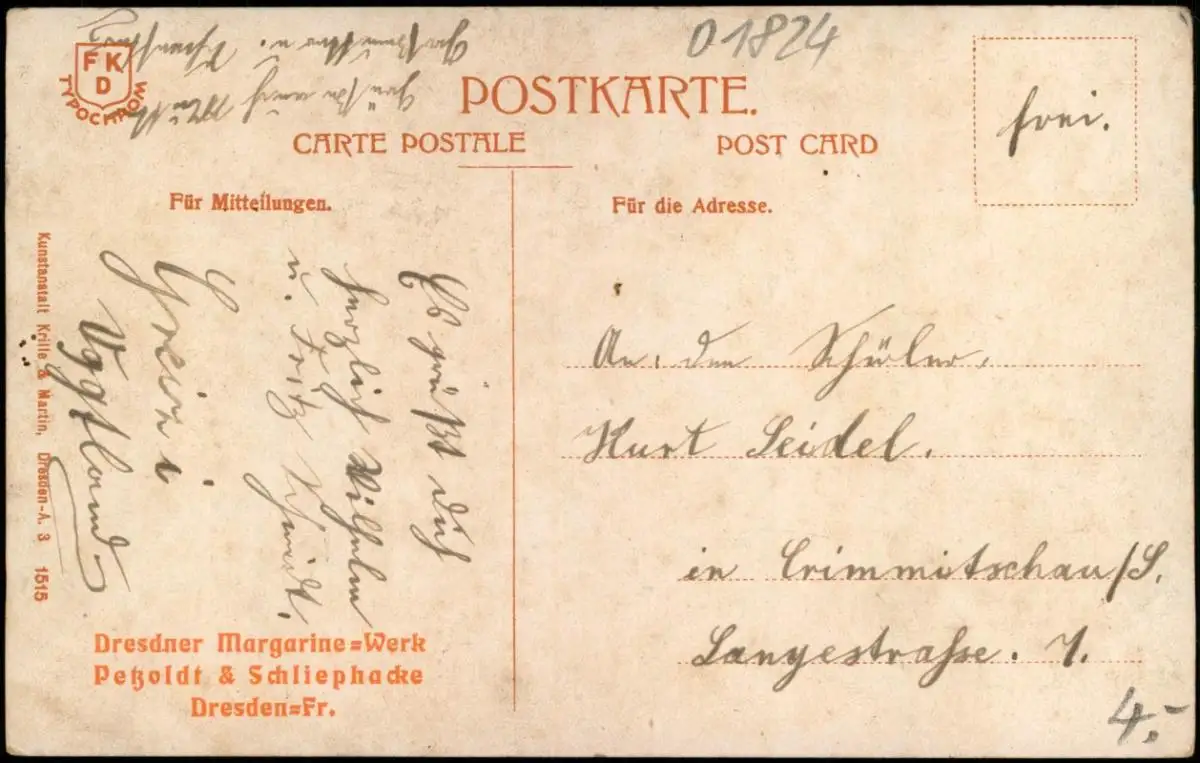 01824
FKD
TYPOCHROM
POSTKARTE.
CARTE POSTALE
POST CARD
frei.
Für Mitteilungen.
Für die Adresse.
Es grüßt dich
herzlich Wilhelm
u. Fritz Schmidt.
Vogtland
An den Schüler
Kurt Seidel.
in Crimmitschau/S.
Langestrasse. 7.
Kunstanstalt Krille & Martin, Dresden-A. 3 1515
Dresdner Margarine=Werk
Petzoldt & Schliephacke
Dresden=Fr.
4.-